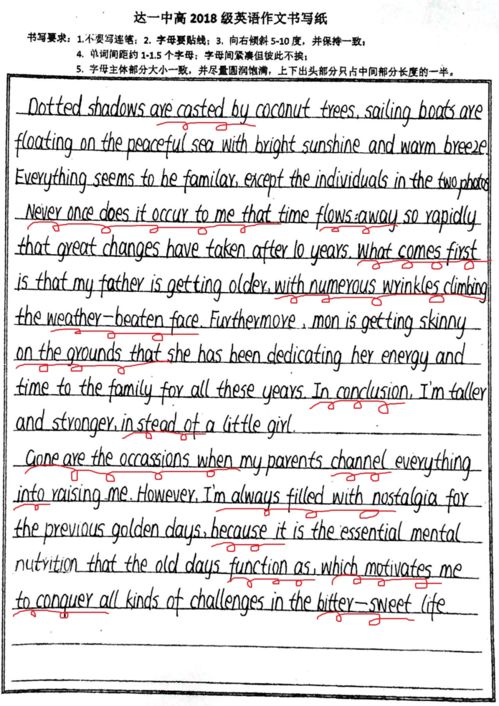 达一中高2018级英语作文书写纸
书写要求：1.不要写连笔；2. 字母要贴线；3. 向右倾斜5-10度，并保持一致；
4. 单词间距约1-1.5个字母；字母间紧凑但彼此不挨；
5. 字母主体部分大小一致，并尽量圆润饱满，上下出头部分只占中间部分长度的一半。
Dotted shadows are casted by coconut trees, sailing boats are
floating on the peaceful sea with bright sunshine and warm breeze.
Everything seems to be familar, except the individuals in the two photos
Never once does it occur to me that time flows away so rapidly
that great changes have taken after 10 years. What comes first
is that my father is getting older, with numerous wrinkles climbing
the weather-beaten face. Furthermore, mon is getting skinny
on the grounds that she has been dedicating her energy and
time to the family for all these years. In conclusion, I'm taller
and stronger, in stead of a little girl.
Gone are the occassions when my parents channel everything
into raising me. However, I'm always filled with nostalgia for
the previous golden days, because it is the essential mental
nutrition that the old days function as, which motivates me
to conquer all kinds of challenges in the bitter-sweet life